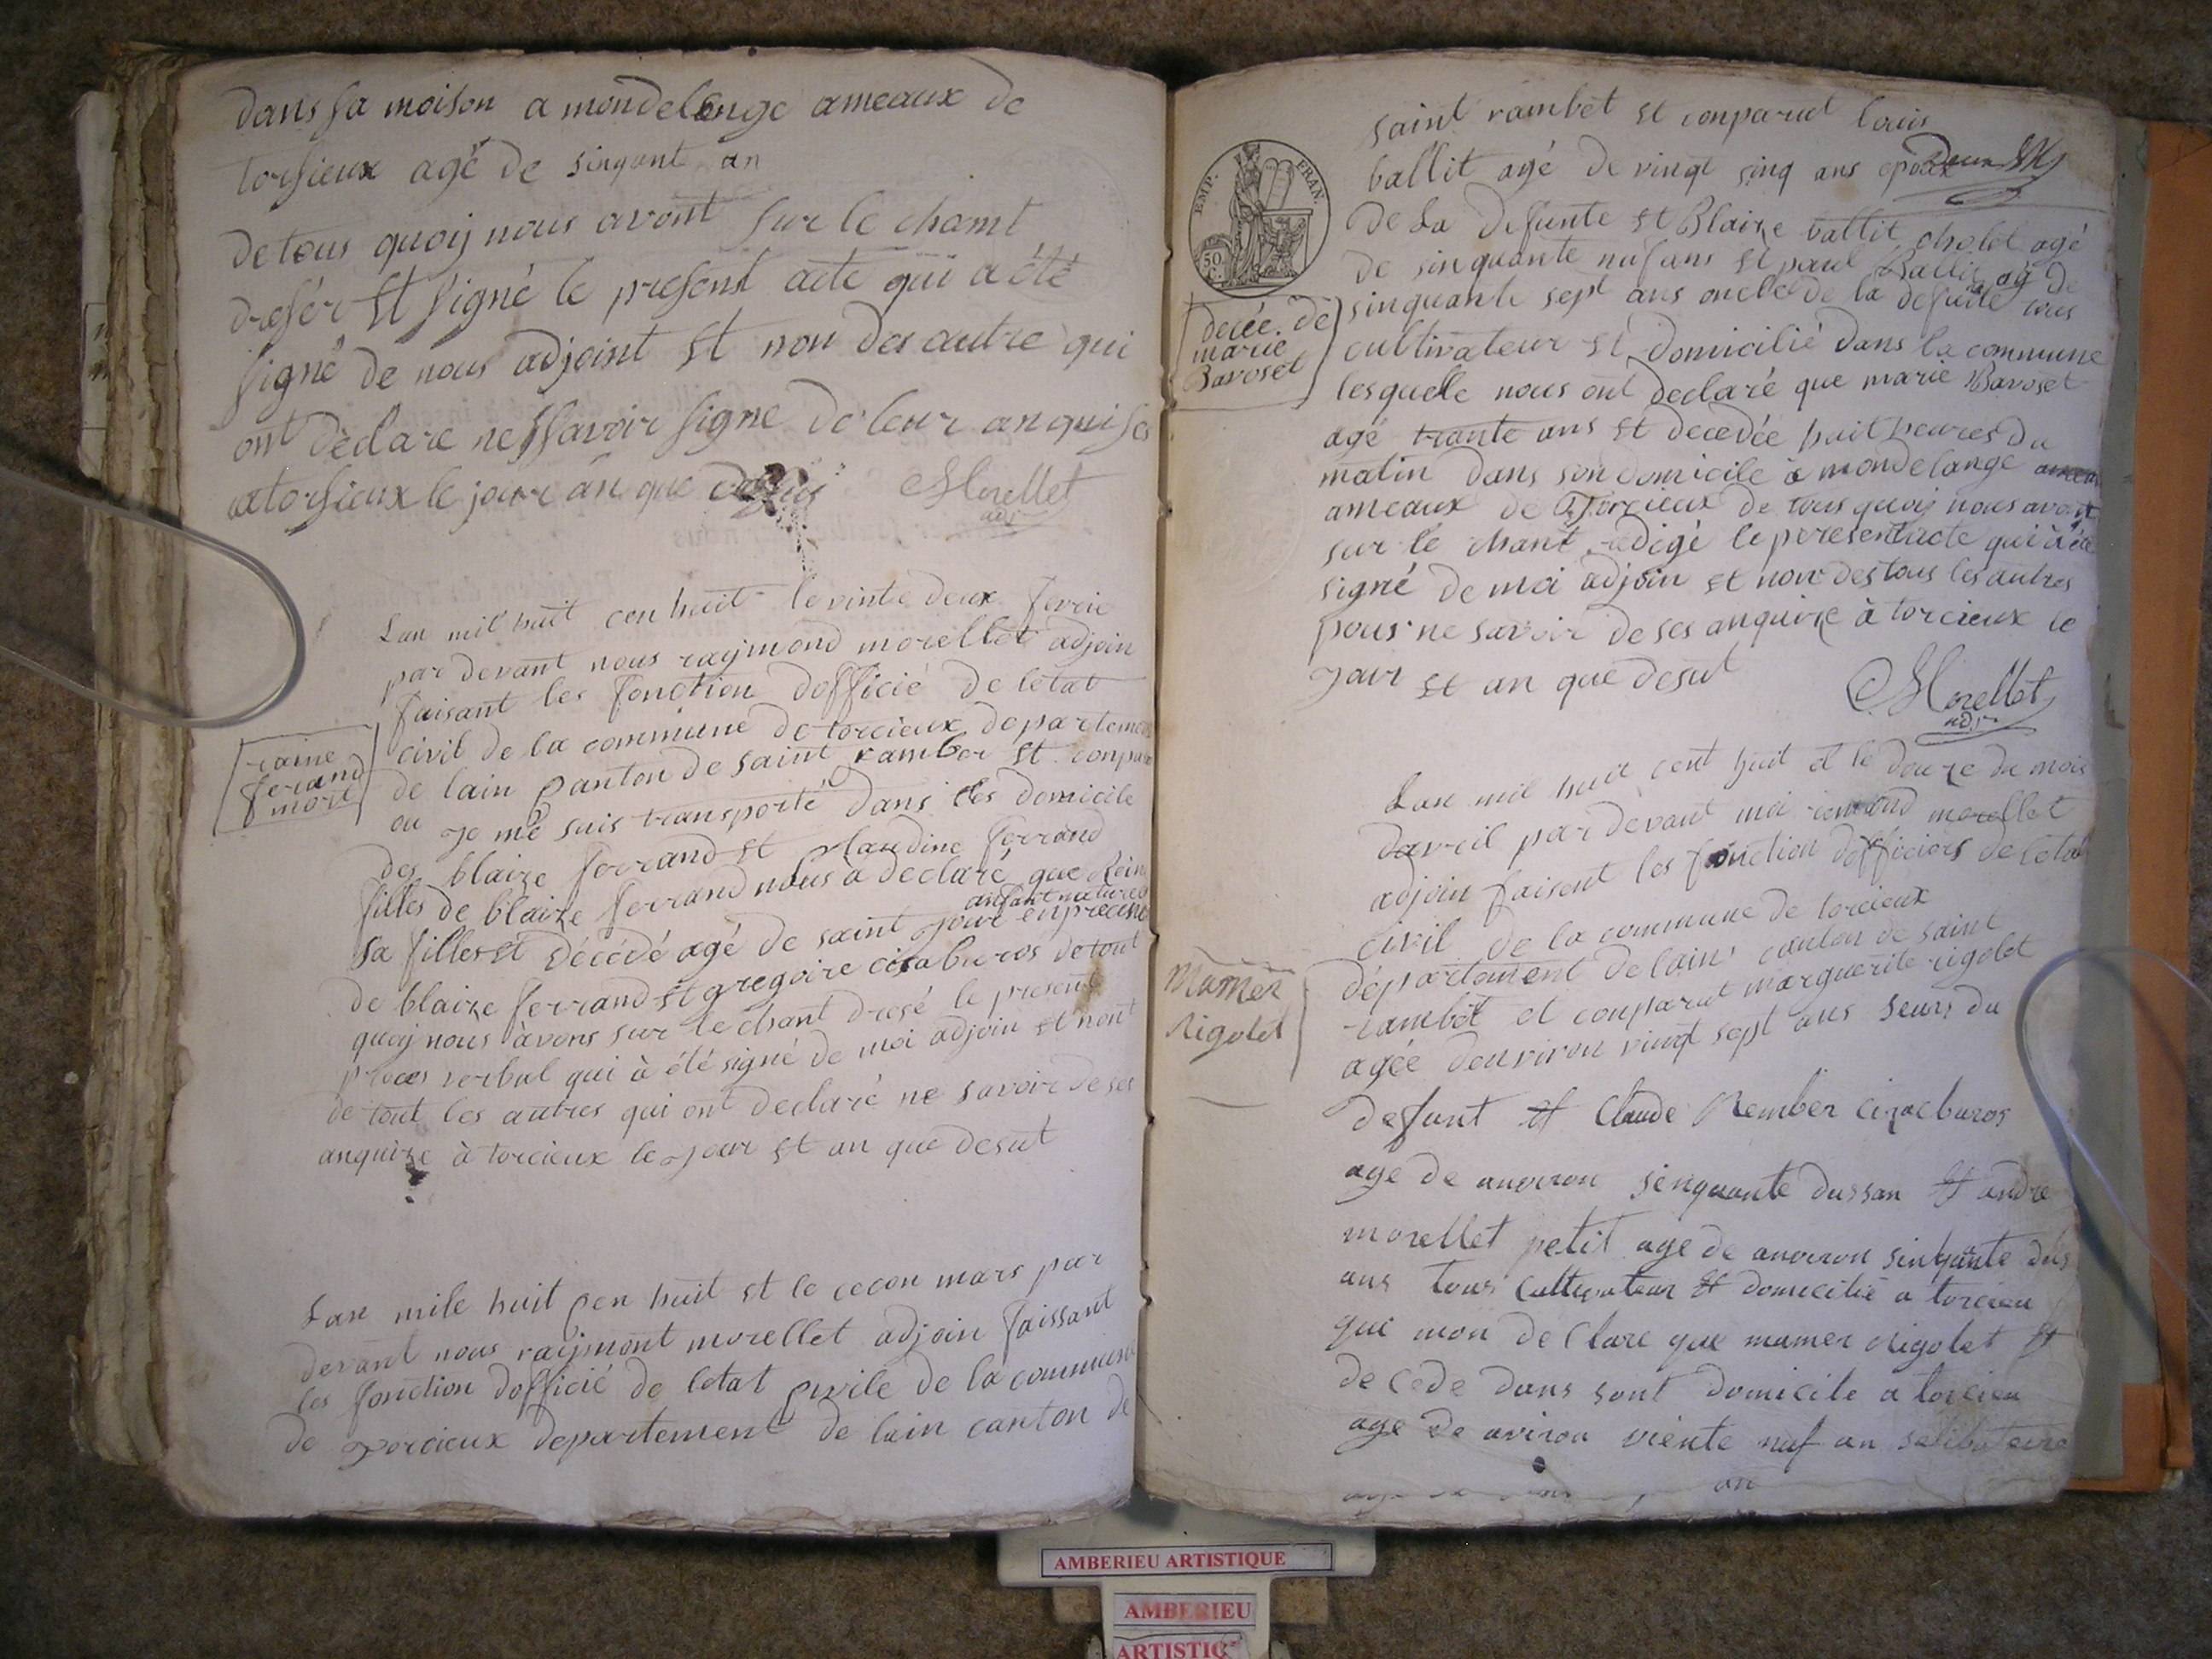 dans sa moison a mondelonge ameaux de
torsieux agé de sinquant an
detous quoy nous avont sur le chamt
dresér st signé le present acte qui a été
signé de nous adjoint st non des autre qui
ont declare ne ssavoir signe de leur anquises
atorsieux le jour an que desus Morellet
adj
Lan mil huit cen huit le vinte deux fevrie
par devant nous raymond morellet adjoin
faisant les fonction dofficié de letat
civil de la commune de torcieux departement
de lain canton de saint ramber st conparu
raine
ferand
mort
ou je me suis transporté dans les domicile
des blaize ferrand st claudine ferrand
filles de blaize ferrand nous a declaré que Rein
anfant naturel
sa filles st décédé agé de saint jour en precence
de blaize ferrand st gregoire cisaburos de tout
quoy nous avons sur le chant dresé le present
proces verbal qui à été signé de moi adjoin st nont
de tout les autres qui ont declaré ne savoir de ses
anquize à torcieux le jour st an que desut
Lan mile huit cen huit st le cecon mars par
devant nous raymont morellet adjoin faissant
les fonction dofficié de letat civile de la commune
de torcieux departement de lain canton de
saint rambet st conparut louis
ballit agé de vingt sinq ans epoux
de la defunte st Blaize ballit cholet agé
de sinquante nuf ans st paul Ballit ag de
sinquante sept ans oncle de la defuite tous
EMP. FRAN.
50
C.
decée de
marie
Bavoset
cultivateur st domicilié dans la commune
lesquelle nous ont declaré que marie Bavoset
agé trante ans st decedée huit heures du
matin dans son domicile à mondelange
ameaux de Torcieux de tous quoij nous avont
sur le chant redigé le peresentacte qui à été
signé de moi adjoin st non des tous les autres
pour ne savoir de ses anquize à torcieux le
jour st an que desut
Morellet
adj
Lan mil huit cent huit et le douze du mois
davril par devant moi morellet
adjoin faisent les fonction dofficiers de letat
civil de la commune de torcieux
département de lain canton de saint
rambet et conparut marguerite rigolet
agée denviron vingt sept ans seurs du
Mamer
Rigolet
defunt et Claude Rember cizaeburos
age de anviron sinquante dussan et andre
morellet petit age de anviron sinkante dus
ans tous Cultivateur et domicilie a torcieu
que mon de Clare que mamer Rigolet et
de Cede dans sont domicile a torcieu
age de aviron viente nuf an selibateire
an
AMBERIEU ARTISTIQUE
AMBERIEU
ARTISTIQ